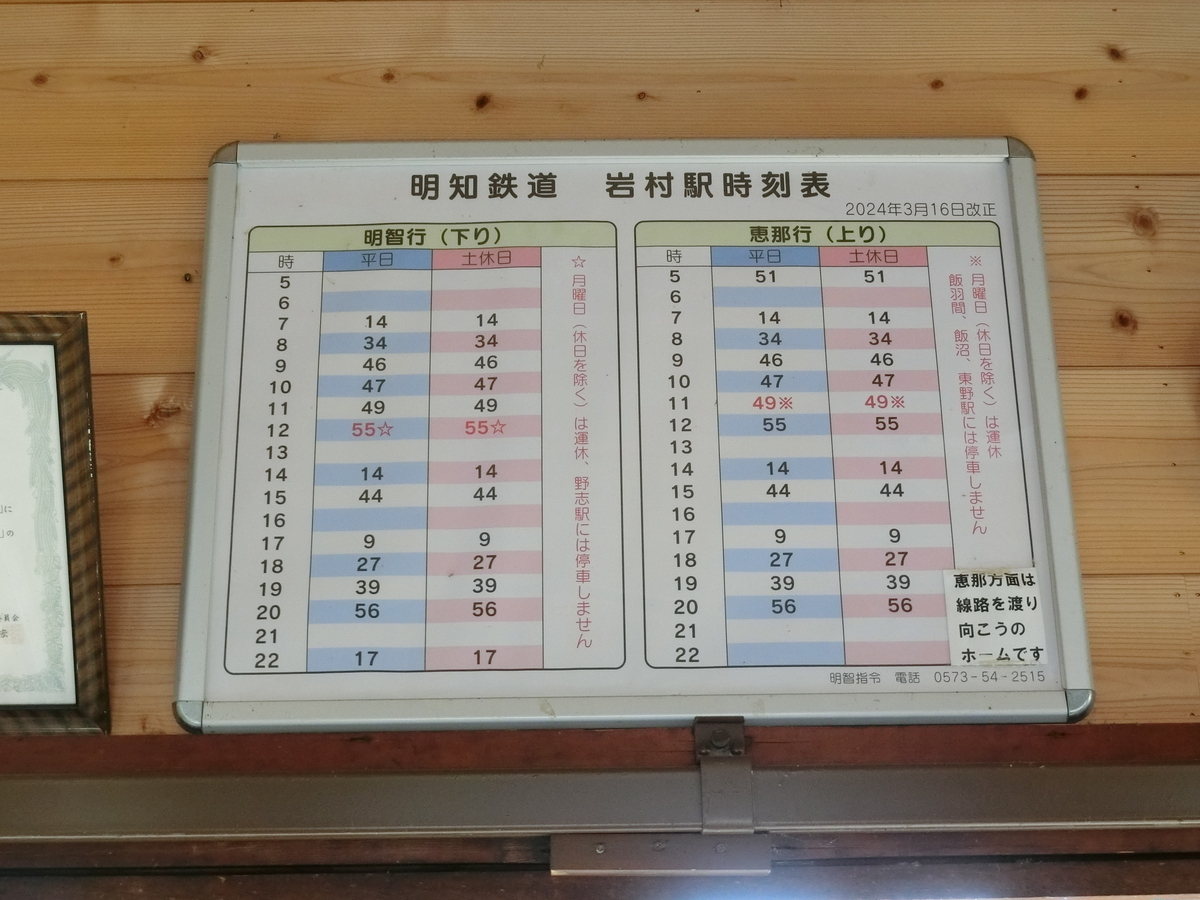 明知鉄道　岩村駅時刻表
2024年3月16日改正
明智行（下り）
時 平日 土休日
5
6
7 14 14
8 34 34
9 46 46
10 47 47
11 49 49
12 55☆ 55☆
13
14 14 14
15 44 44
16
17 9 9
18 27 27
19 39 39
20 56 56
21
22 17 17
☆月曜日（休日を除く）は運休、野志駅には停車しません
恵那行（上り）
時 平日 土休日
5 51 51
6
7 14 14
8 34 34
9 46 46
10 47 47
11 49※ 49※
12 55 55
13
14 14 14
15 44 44
16
17 9 9
18 27 27
19 39 39
20 56 56
21
22
※月曜日（休日を除く）は運休
飯羽間、飯沼、東野駅には停車しません
恵那方面は
線路を渡り
向こうの
ホームです
明智指令　電話　0573-54-2515